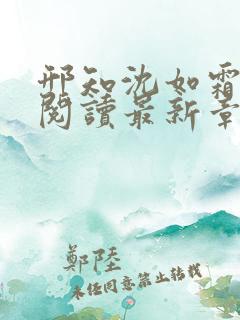 邢知沈如霜
閱讀最新章
鄭陸
未經同意禁止轉載